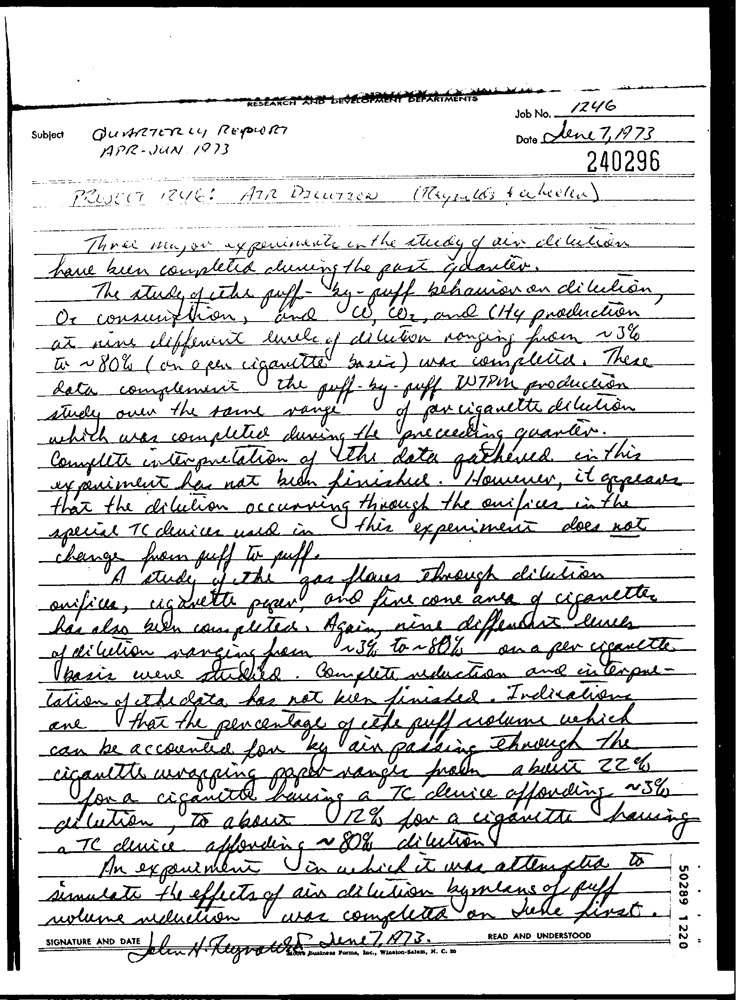 RESEARCH AND DEVELOPMENT DEPARTMENTS
Job No. 1246
Subject QUARTERLY REPORT
APR-JUN 1973
Date June 7, 1973
240296
PROJECT 1246: AIR DILUTION (Reynolds & Wheeler)
Three major experiments in the study of air dilution
have been completed during the past quarter.
The study of the puff-by-puff behavior on dilution,
O2 consumption, and CO, CO2, and CH4 production
at nine different levels of dilution ranging from ~3%
to ~80% (on a per cigarette basis) was completed. These
data complement the puff-by-puff WTPM production
study over the same range of per cigarette dilution
which was completed during the preceeding quarter.
Complete interpretation of the data gathered in this
experiment has not been finished. However, it appears
that the dilution occurring through the orifices in the
special TC devices used in this experiment does not
change from puff to puff.
A study of the gas flows through dilution
orifices, cigarette paper, and fire cone area of cigarettes
has also been completed. Again, nine different levels
of dilution ranging from ~3% to ~80% on a per cigarette
basis were studied. Complete reduction and interpre-
tation of the data has not been finished. Indications
are that the percentage of the puff volume which
can be accounted for by air passing through the
cigarette wrapping paper ranges from about 22%
for a cigarette having a TC device affording ~3%
dilution, to about 12% for a cigarette having
a TC device affording ~80% dilution.
An experiment in which it was attempted to
simulate the effects of air dilution by means of puff
volume reduction was completed on June first.
SIGNATURE AND DATE John H. Reynolds June 7, 1973.
READ AND UNDERSTOOD
Business Forms, Inc., Winston-Salem, N. C.
50289 1220